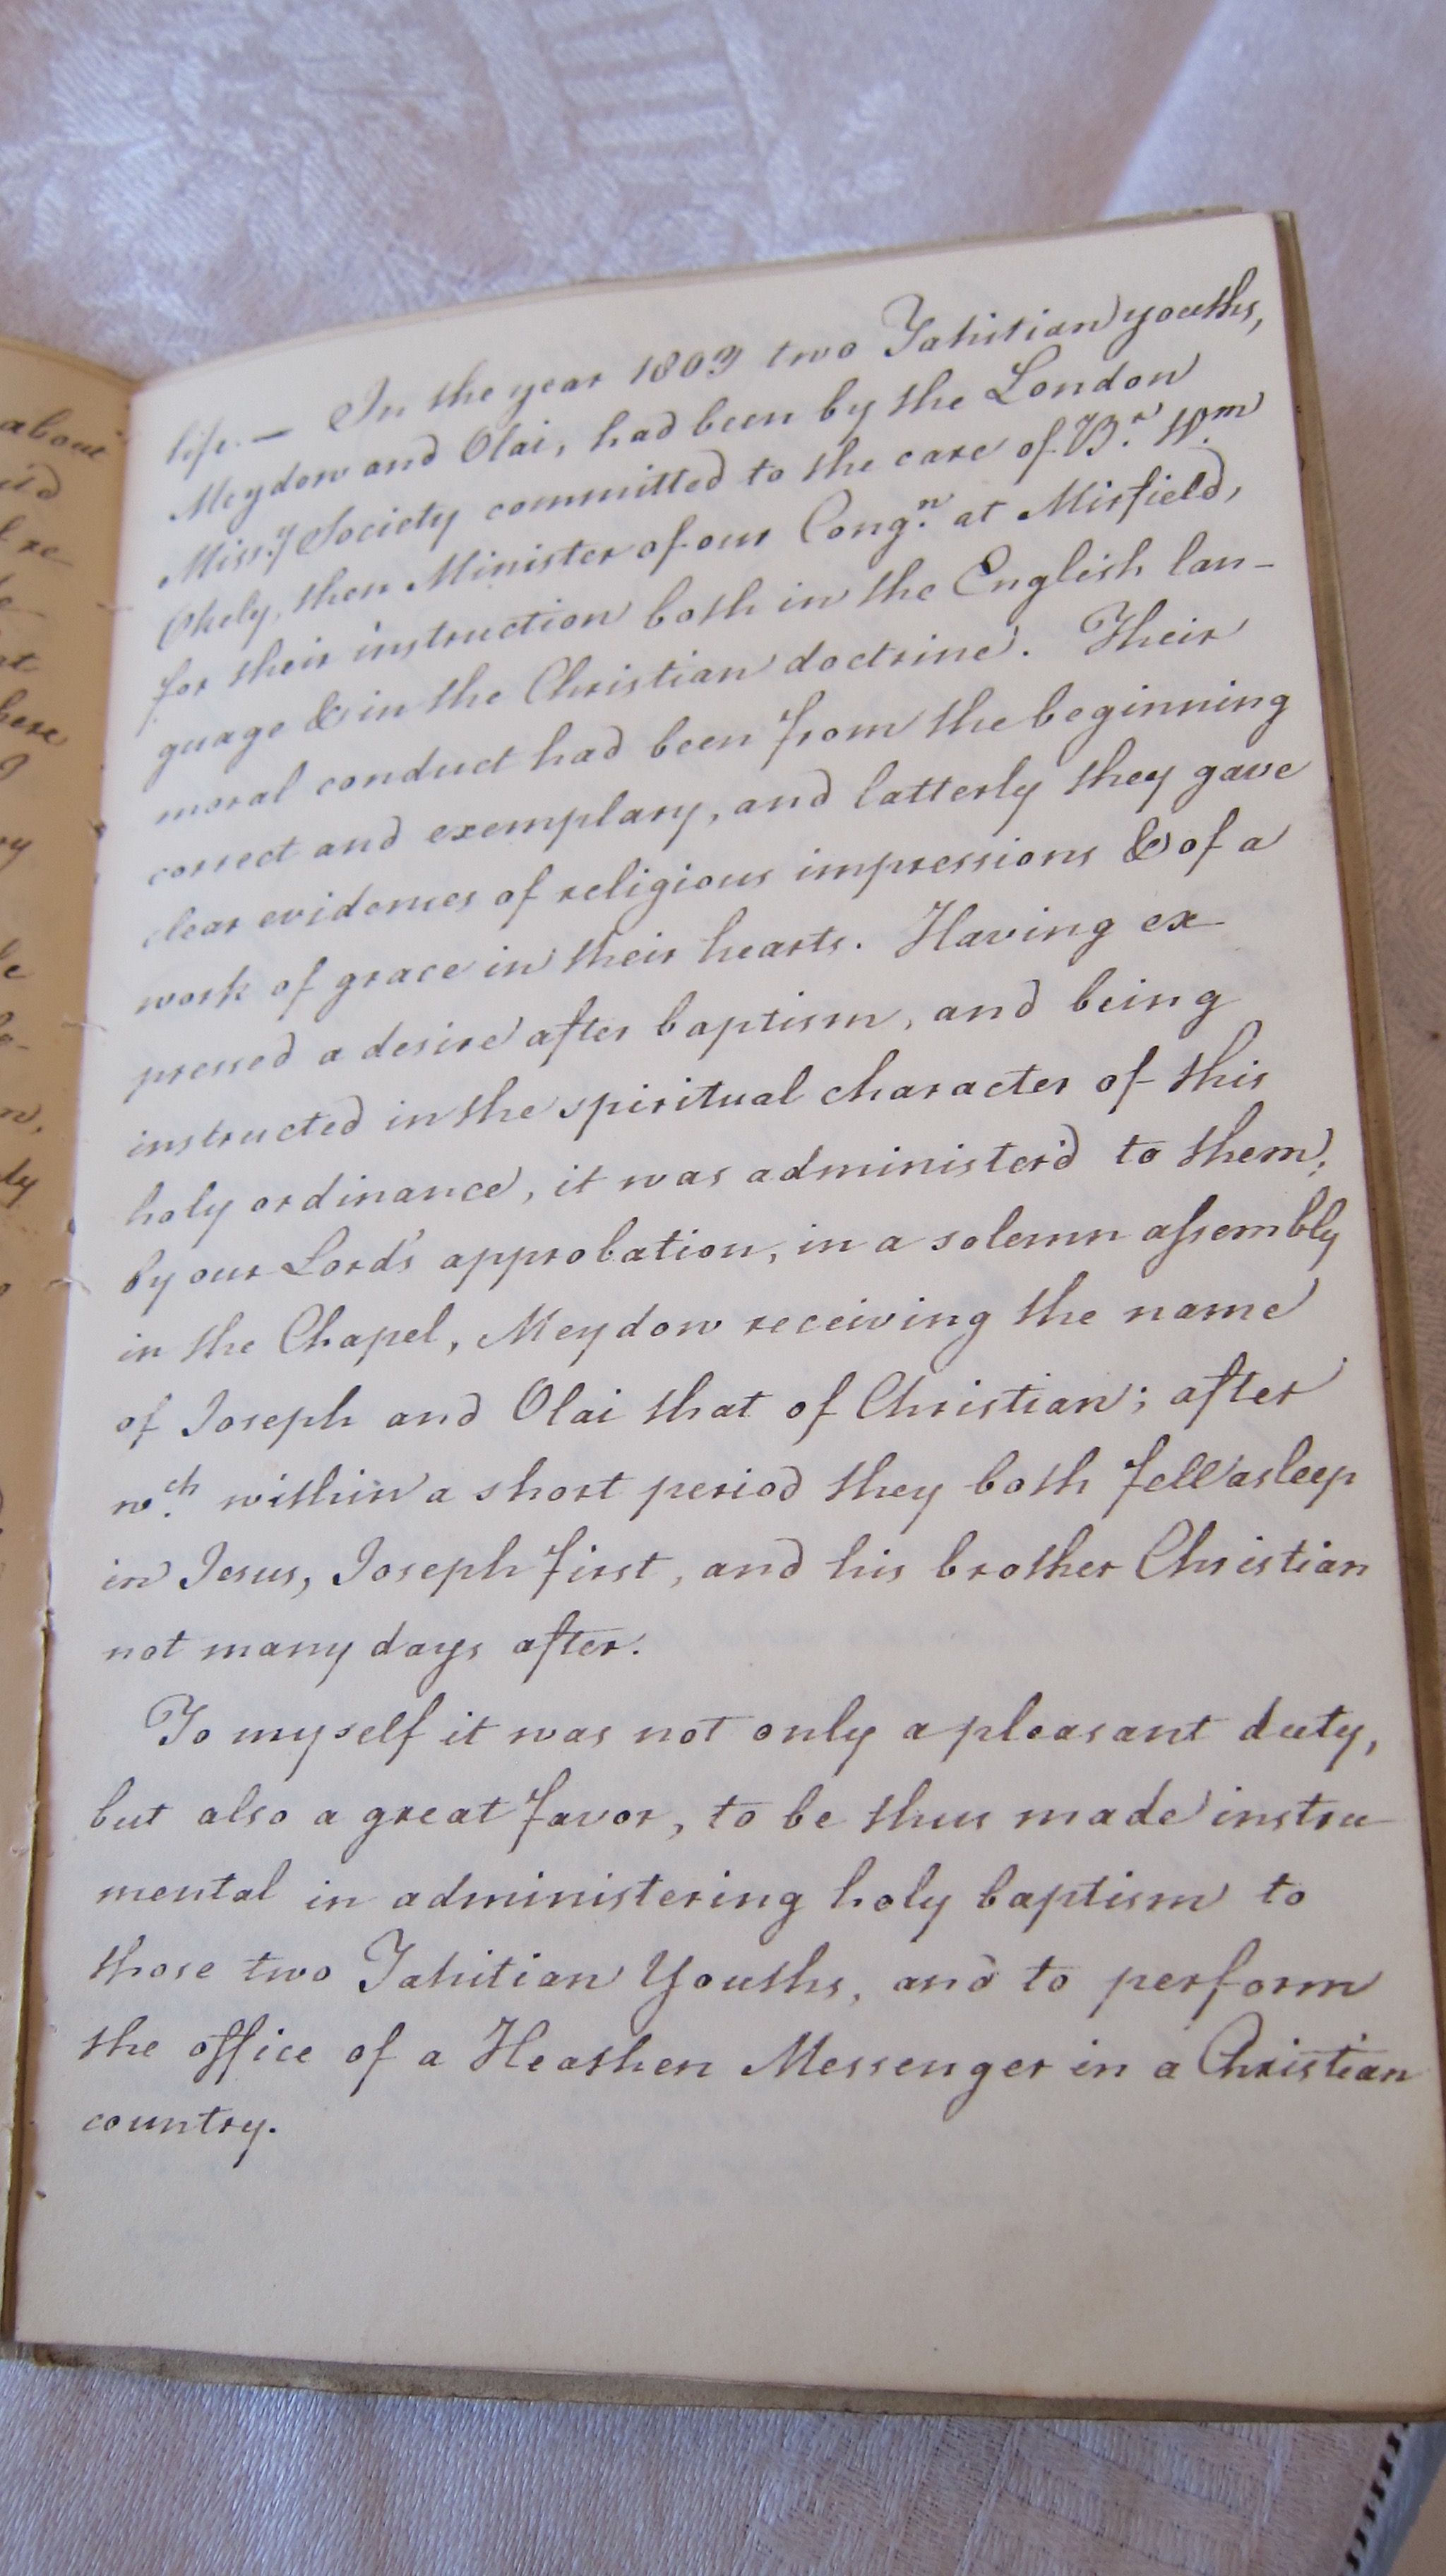 life. — In the year 1803 two Tahitian youths,
Meydow and Olai, had been by the London
Miss.y Society committed to the care of B.r W.m
Okely, then Minister of our Cong.n at Mirfield,
for their instruction both in the English lan-
guage & in the Christian doctrine. Their
moral conduct had been from the beginning
correct and exemplary, and latterly they gave
clear evidences of religious impressions & of a
work of grace in their hearts. Having ex-
pressed a desire after baptism, and being
instructed in the spiritual character of this
holy ordinance, it was administer'd to them,
by our Lord's approbation, in a solemn assembly
in the Chapel, Meydow receiving the name
of Joseph and Olai that of Christian; after
w.ch within a short period they both fell asleep
in Jesus, Joseph first, and his brother Christian
not many days after.
To myself it was not only a pleasant duty,
but also a great favor, to be thus made instru-
mental in administering holy baptism to
those two Tahitian Youths, and to perform
the office of a Heathen Messenger in a Christian
country.
about
re-
here